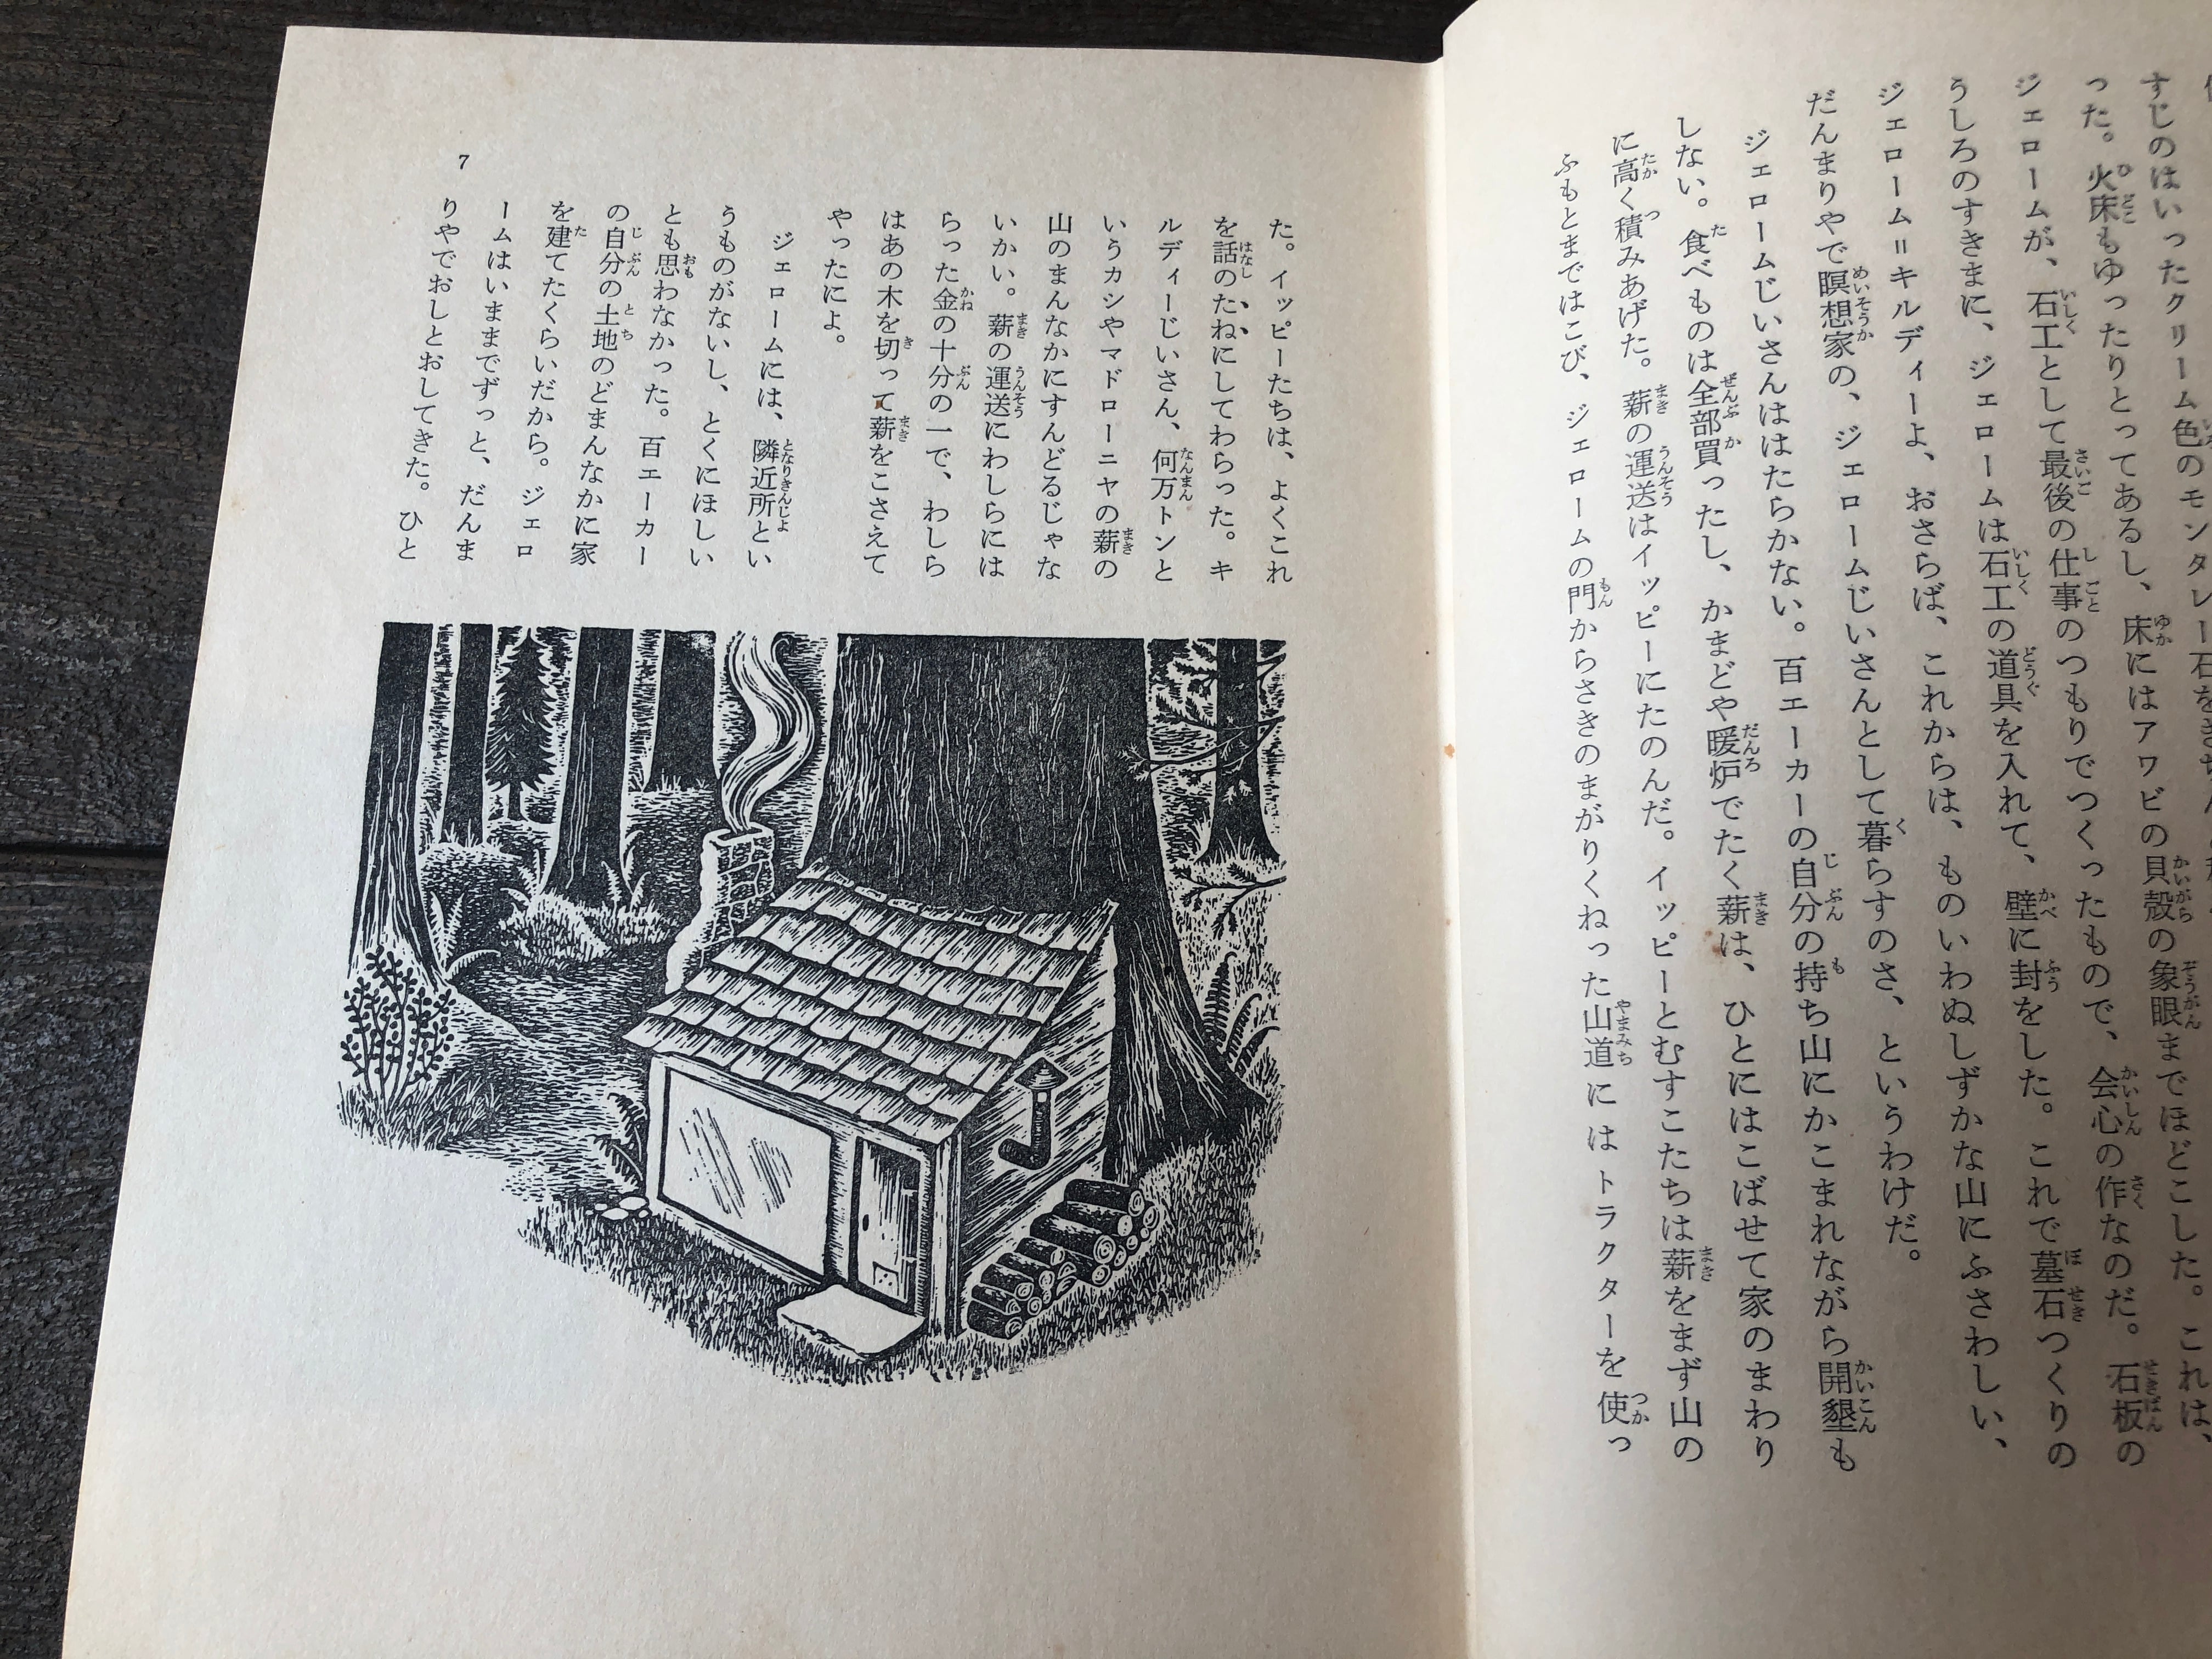 すじのはいったクリーム色のモンタレー石をきち
った。火床もゆったりとってあるし、床にはアワビの貝殻の象眼までほどこした。これは、
ジェロームが、石工として最後の仕事のつもりでつくったもので、会心の作なのだ。石板の
うしろのすきまに、ジェロームは石工の道具を入れて、壁に封をした。これで墓石つくりの
ジェローム＝キルディーよ、おさらば、これからは、ものいわぬしずかな山にふさわしい、
だんまりやで瞑想家の、ジェロームじいさんとして暮らすのさ、というわけだ。
ジェロームじいさんははたらかない。百エーカーの自分の持ち山にかこまれながら開墾も
しない。食べものは全部買ったし、かまどや暖炉でたく薪は、ひとにはこばせて家のまわり
に高く積みあげた。薪の運送はイッピーにたのんだ。イッピーとむすこたちは薪をまず山の
ふもとまではこび、ジェロームの門からさきのまがりくねった山道にはトラクターを使っ
た。イッピーたちは、よくこれ
を話のたねにしてわらった。キ
ルディーじいさん、何万トンと
いうカシやマドローニャの薪の
山のまんなかにすんどるじゃな
いかい。薪の運送にわしらには
らった金の十分の一で、わしら
はあの木を切って薪をこさえて
やったによ。
ジェロームには、隣近所とい
うものがないし、とくにほしい
とも思わなかった。百エーカー
の自分の土地のどまんなかに家
を建てたくらいだから。ジェロ
ームはいままでずっと、だんま
りやでおしとおしてきた。ひと
7